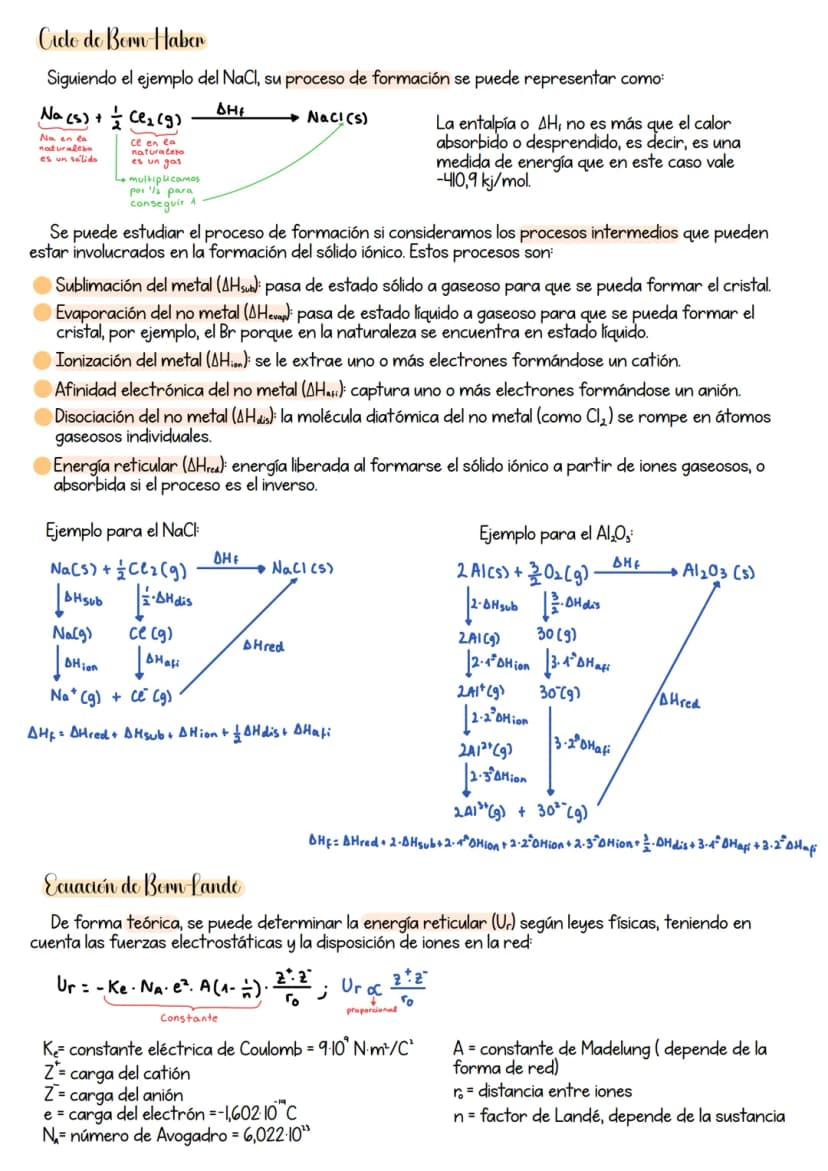 Ciclo de Born-Haber
Siguiendo el ejemplo del NaCl, su proceso de formación se puede representar como:
Na (s) + 1/2 Cl₂ (g) ΔHf → NaCl (s)
Na en la naturaleza es un sólido
Cl en la naturaleza es un gas
multiplicamos por 1/2 para conseguir 1
La entalpía o ΔH, no es más que el calor
absorbido o desprendido, es decir, es una
medida de energía que en este caso vale
-410,9 kj/mol.
Se puede estudiar el proceso de formación si consideramos los procesos intermedios que pueden
estar involucrados en la formación del sólido iónico. Estos procesos son:
Sublimación del metal (ΔHsub): pasa de estado sólido a gaseoso para que se pueda formar el cristal.
Evaporación del no metal (ΔHevap): pasa de estado líquido a gaseoso para que se pueda formar el
cristal, por ejemplo, el Br porque en la naturaleza se encuentra en estado líquido.
Ionización del metal (ΔHion): se le extrae uno o más electrones formándose un catión.
Afinidad electrónica del no metal (ΔHafi): captura uno o más electrones formándose un anión.
Disociación del no metal (ΔHdis): la molécula diatómica del no metal (como Cl₂) se rompe en átomos
gaseosos individuales.
Energía reticular (ΔHred): energía liberada al formarse el sólido iónico a partir de iones gaseosos, o
absorbida si el proceso es el inverso.
Ejemplo para el NaCl:
Na(s) + 1/2 Cl₂ (g) ΔHf → NaCl (s)
ΔHsub 1/2·ΔHdis
Na(g) Cl (g)
ΔHred
ΔHion ΔHafi
Na⁺ (g) + Cl⁻ (g)
ΔHf = ΔHred + ΔHsub + ΔHion + 1/2 ΔHdis + ΔHafi
Ejemplo para el Al₂O₃:
2Al(s) + 3/2 O₂(g) ΔHf → Al₂O₃ (s)
2·ΔHsub 3/2·ΔHdis
2Al(g) 3O (g)
2·1ªΔHion 3·1ªΔHafi
2Al⁺(g) 3O⁻(g)
ΔHred
2·2ªΔHion
3·2ªΔHafi
2Al²⁺(g)
2·3ªΔHion
2Al³⁺(g) + 3O²⁻(g)
ΔHf = ΔHred + 2·ΔHsub + 2·1ªΔHion + 2·2ªΔHion + 2·3ªΔHion + 3/2·ΔHdis + 3·1ªΔHafi + 3·2ªΔHafi
Ecuación de Born-Landé
De forma teórica, se puede determinar la energía reticular (Uᵣ) según leyes físicas, teniendo en
cuenta las fuerzas electrostáticas y la disposición de iones en la red:
Ur = -Ke · NA · e² · A(1 - 1/n) · z⁺·z⁻/r₀ ; Ur ∝ z⁺·z⁻/r₀
Constante
proporcional
Kₑ = constante eléctrica de Coulomb = 9·10⁹ N·m²/C²
Z⁺ = carga del catión
Z⁻ = carga del anión
e = carga del electrón = -1,602·10⁻¹⁹ C
Nₐ = número de Avogadro = 6,022·10²³
A = constante de Madelung ( depende de la
forma de red)
r₀ = distancia entre iones
n = factor de Landé, depende de la sustancia